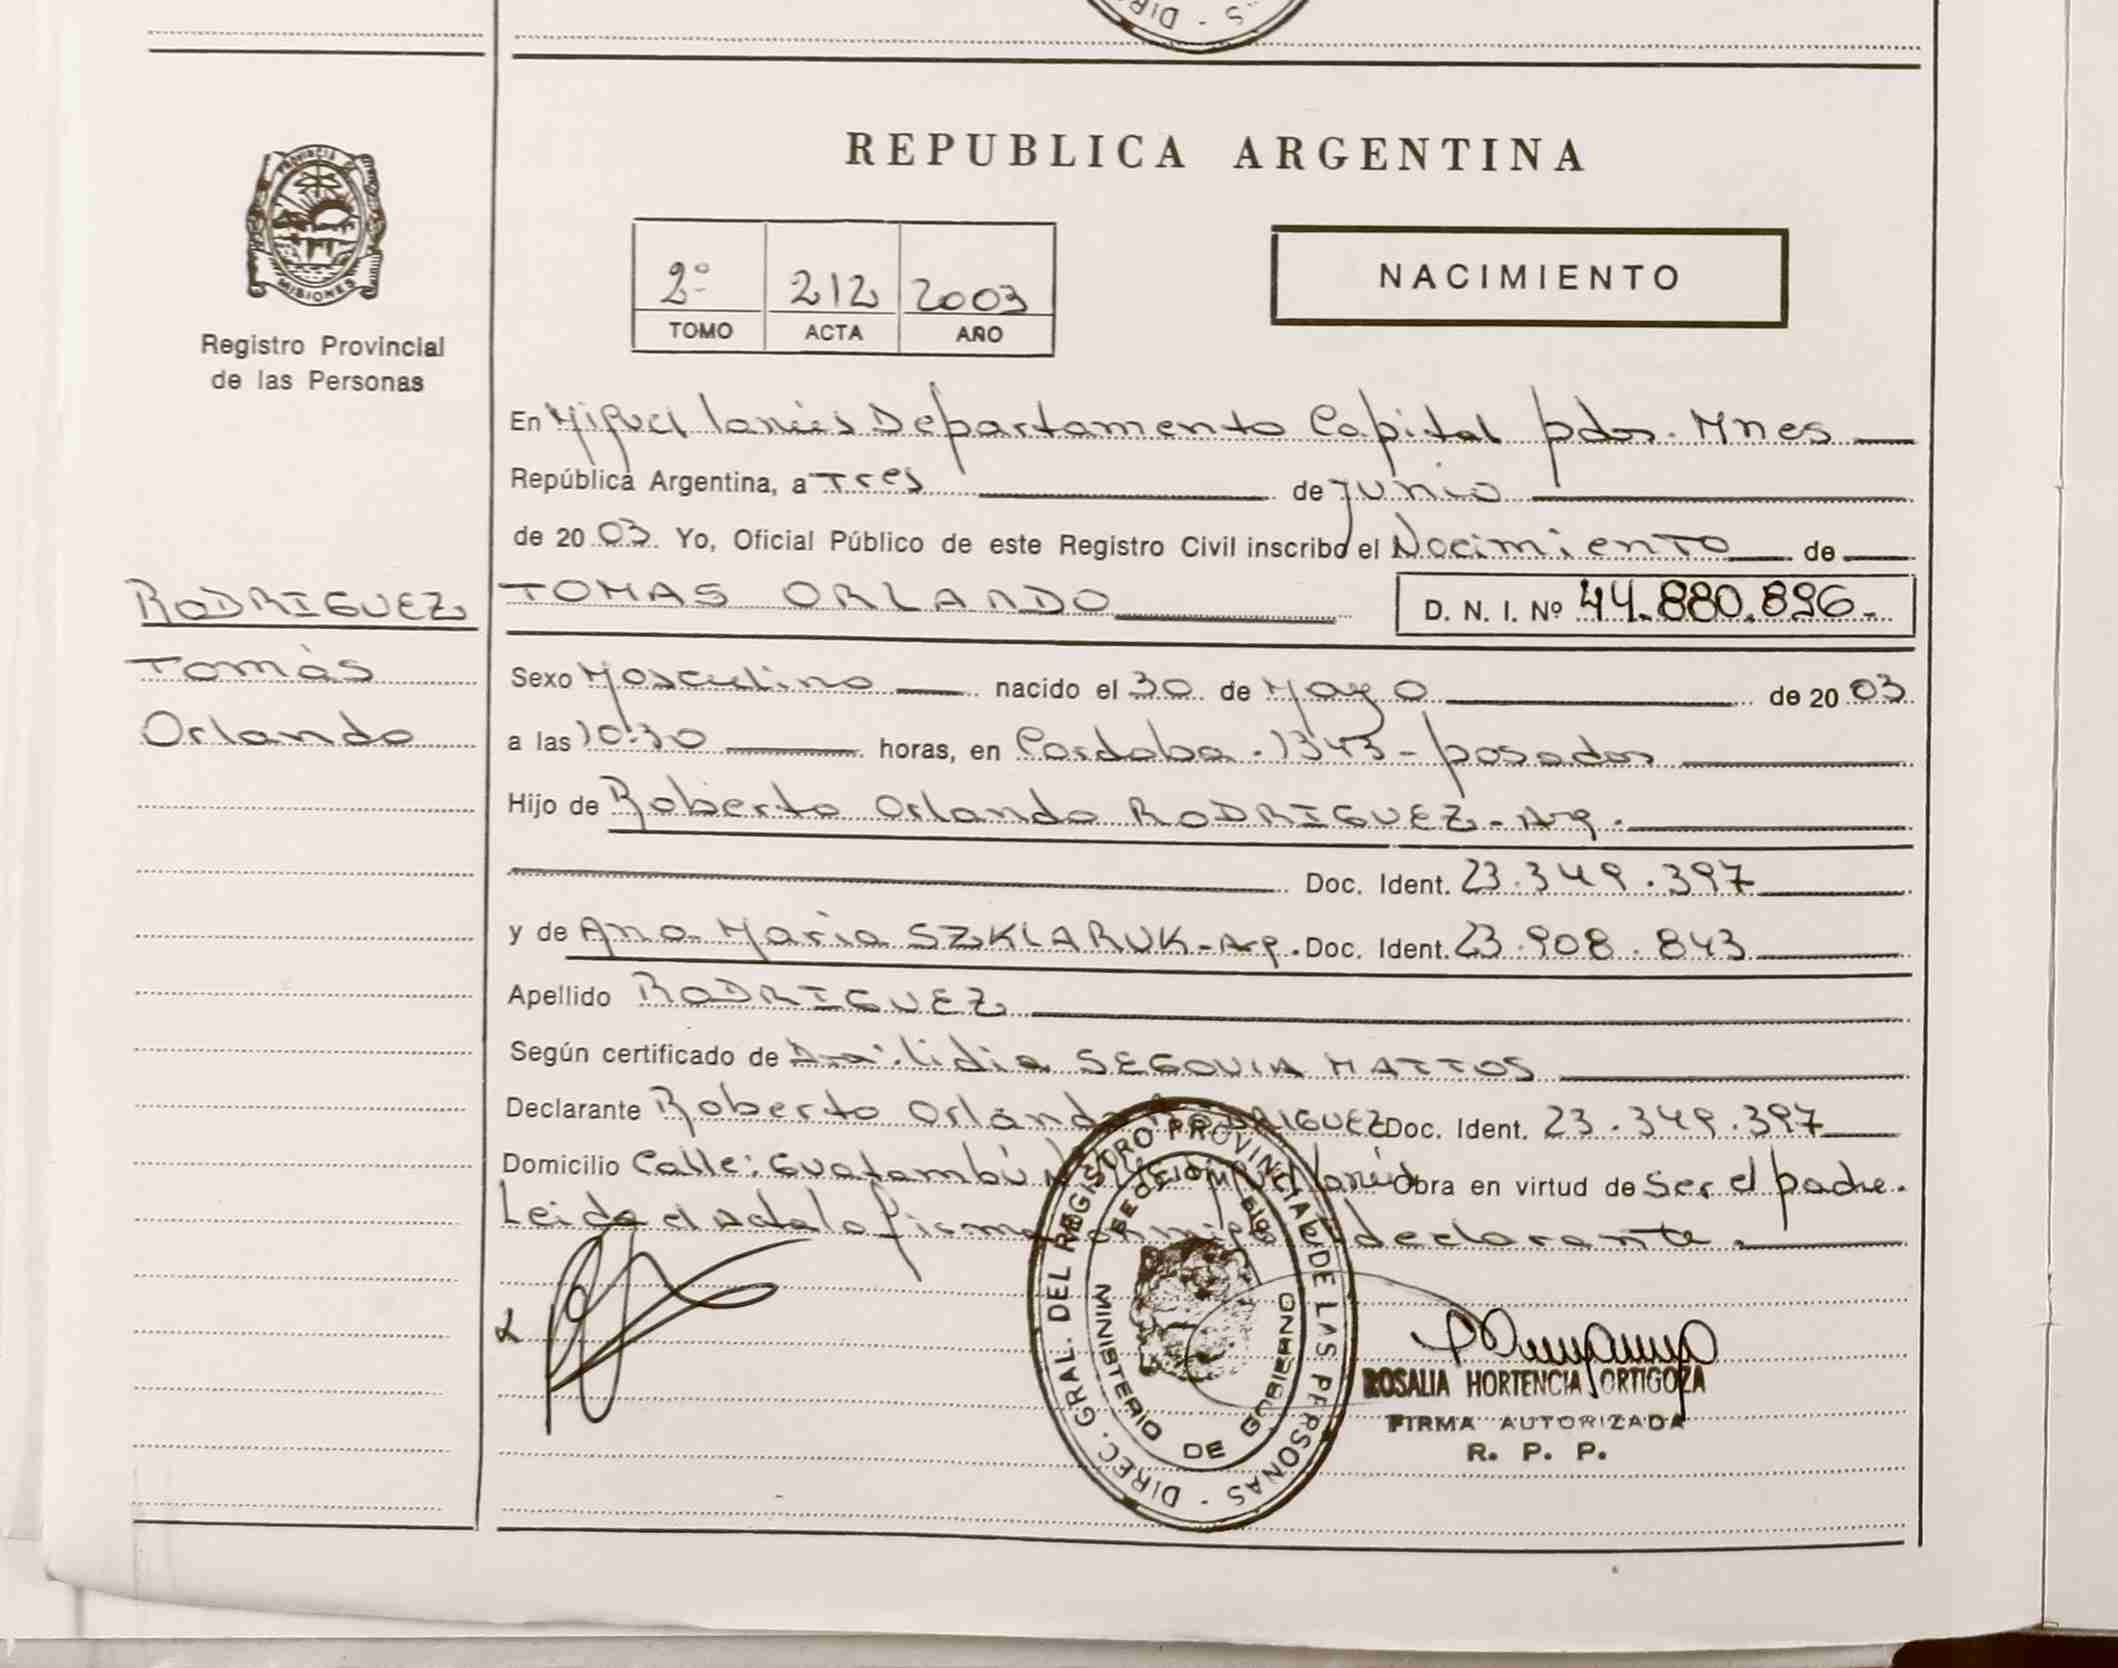 REPUBLICA ARGENTINA
PROVINCIA DE
MISIONES
Registro Provincial
de las Personas
2º 212 2003
TOMO ACTA AÑO
NACIMIENTO
En Miguel Lanús Departamento Capital pdas. Mnes
República Argentina, a Tres de Junio
de 2003. Yo, Oficial Público de este Registro Civil inscribo el Nacimiento de
RODRIGUEZ
Tomás
Orlando
TOMAS ORLANDO D. N. I. Nº 44.880.896.-
Sexo Masculino nacido el 30 de Mayo de 2003
a las 10:30 horas, en Cordoba-1343-posadas
Hijo de Roberto Orlando RODRIGUEZ-Arg.
Doc. Ident. 23.349.397
y de Ana Maria SZKLARUK-Arg. Doc. Ident. 23.908.843
Apellido RODRIGUEZ
Según certificado de Dra. Lidia SEGOVIA MATTOS
Declarante Roberto Orlando RODRIGUEZ Doc. Ident. 23.349.397
Domicilio Calle: Guatambú Lanús Obra en virtud de Ser el padre.
Leida el Acta la firma conmigo el declarante.
DIREC. GRAL. DEL REGISTRO PROVINCIAL DE LAS PERSONAS
MINISTERIO DE GOBIERNO
ROSALIA HORTENCIA ORTIGOZA
FIRMA AUTORIZADA
R. P. P.